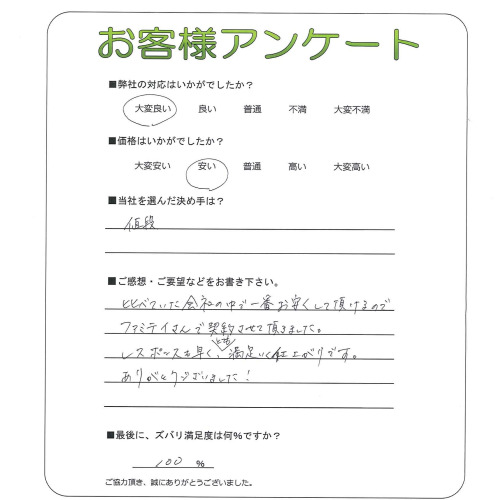 お客様アンケート
■弊社の対応はいかがでしたか？
大変良い 良い 普通 不満 大変不満
■価格はいかがでしたか？
大変安い 安い 普通 高い 大変高い
■当社を選んだ決め手は？
値段
■ご感想・ご要望などをお書き下さい。
比べていた会社の中で一番お安くして頂けるので
ファミテイさんで契約させて頂きました。
とても
レスポンスも早く、満足いく仕上がりです。
ありがとうございました！
■最後に、ズバリ満足度は何%ですか？
100 %
ご協力頂き、誠にありがとうございました。